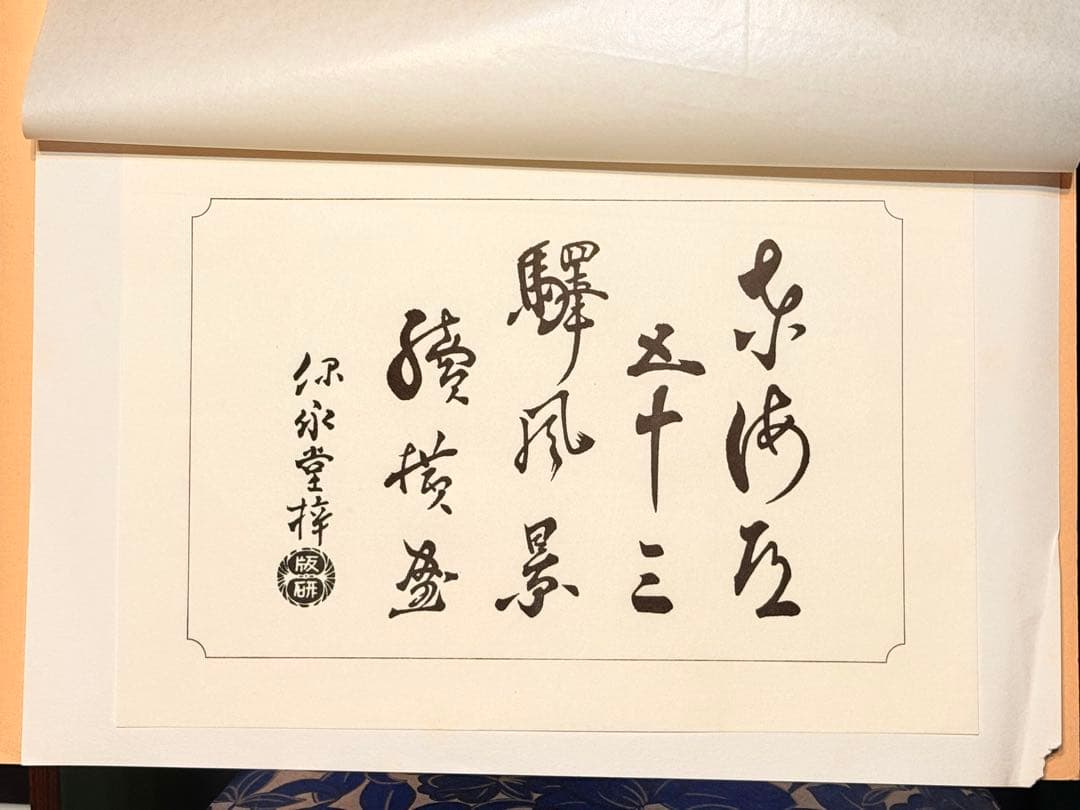 東海道
五十三
驛風景
續橫画
保永堂梓
版研